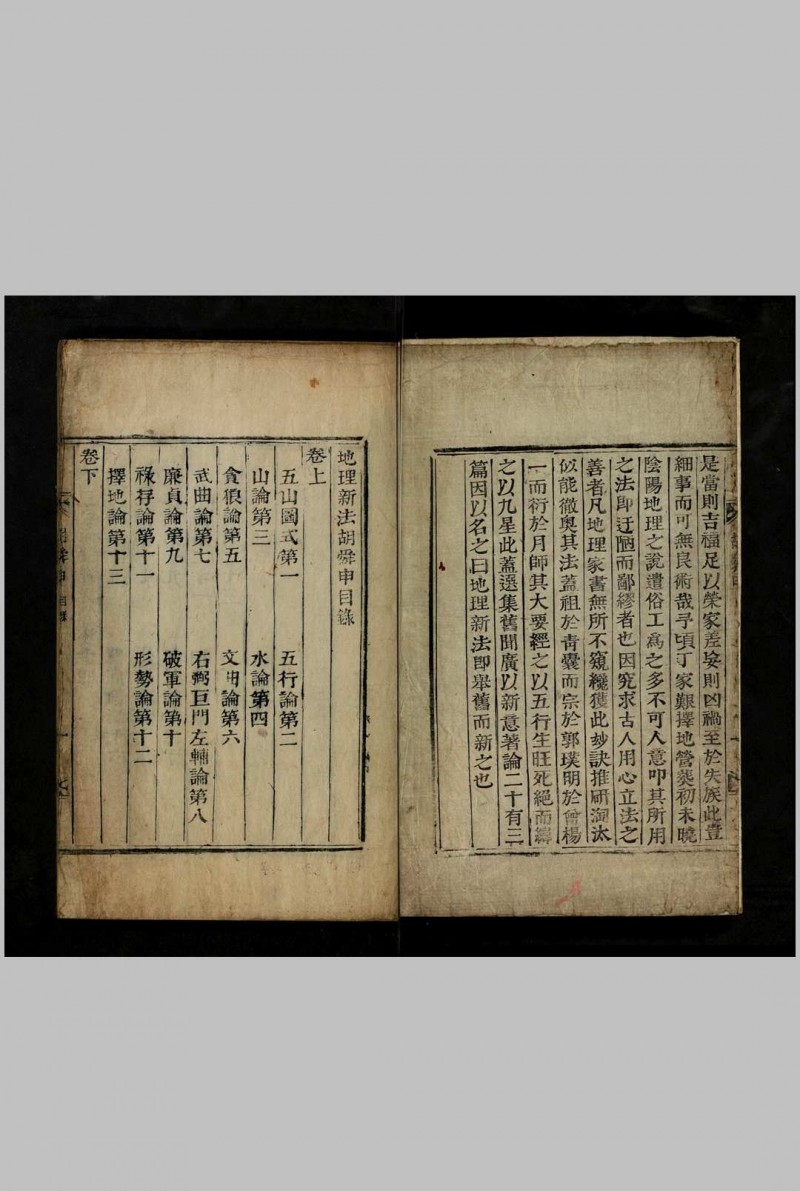 是當則吉福足以榮家差娑則凶禍至於失族此豈
細事而可無良術哉予頃丁家艱擇地營葬初未曉
陰陽地理之說遣俗工為之多不可人意叩其所用
之法即迂陋而鄙繆者也因究求古人用心立法之
善者凡地理家書無所不窺纔獲此妙訣推研洶汰
似能微奧其法蓋祖於靑囊而宗於郭璞明於曾楊
一而衍於月師其大要經之以五行生旺死絕而緯
之以九星此蓋選集舊聞廣以新意著論二十有三
篇因以名之曰地理新法即舉舊而新之也
地理新法胡舜申目錄
卷上
五山圖式第一 五行論第二
山論第三 水論第四
貪狼論第五 文曲論第六
武曲論第七 右弼巨門左輔論第八
廉貞論第九 破軍論第十
祿存論第十一 形勢論第十二
擇地論第十三
卷下